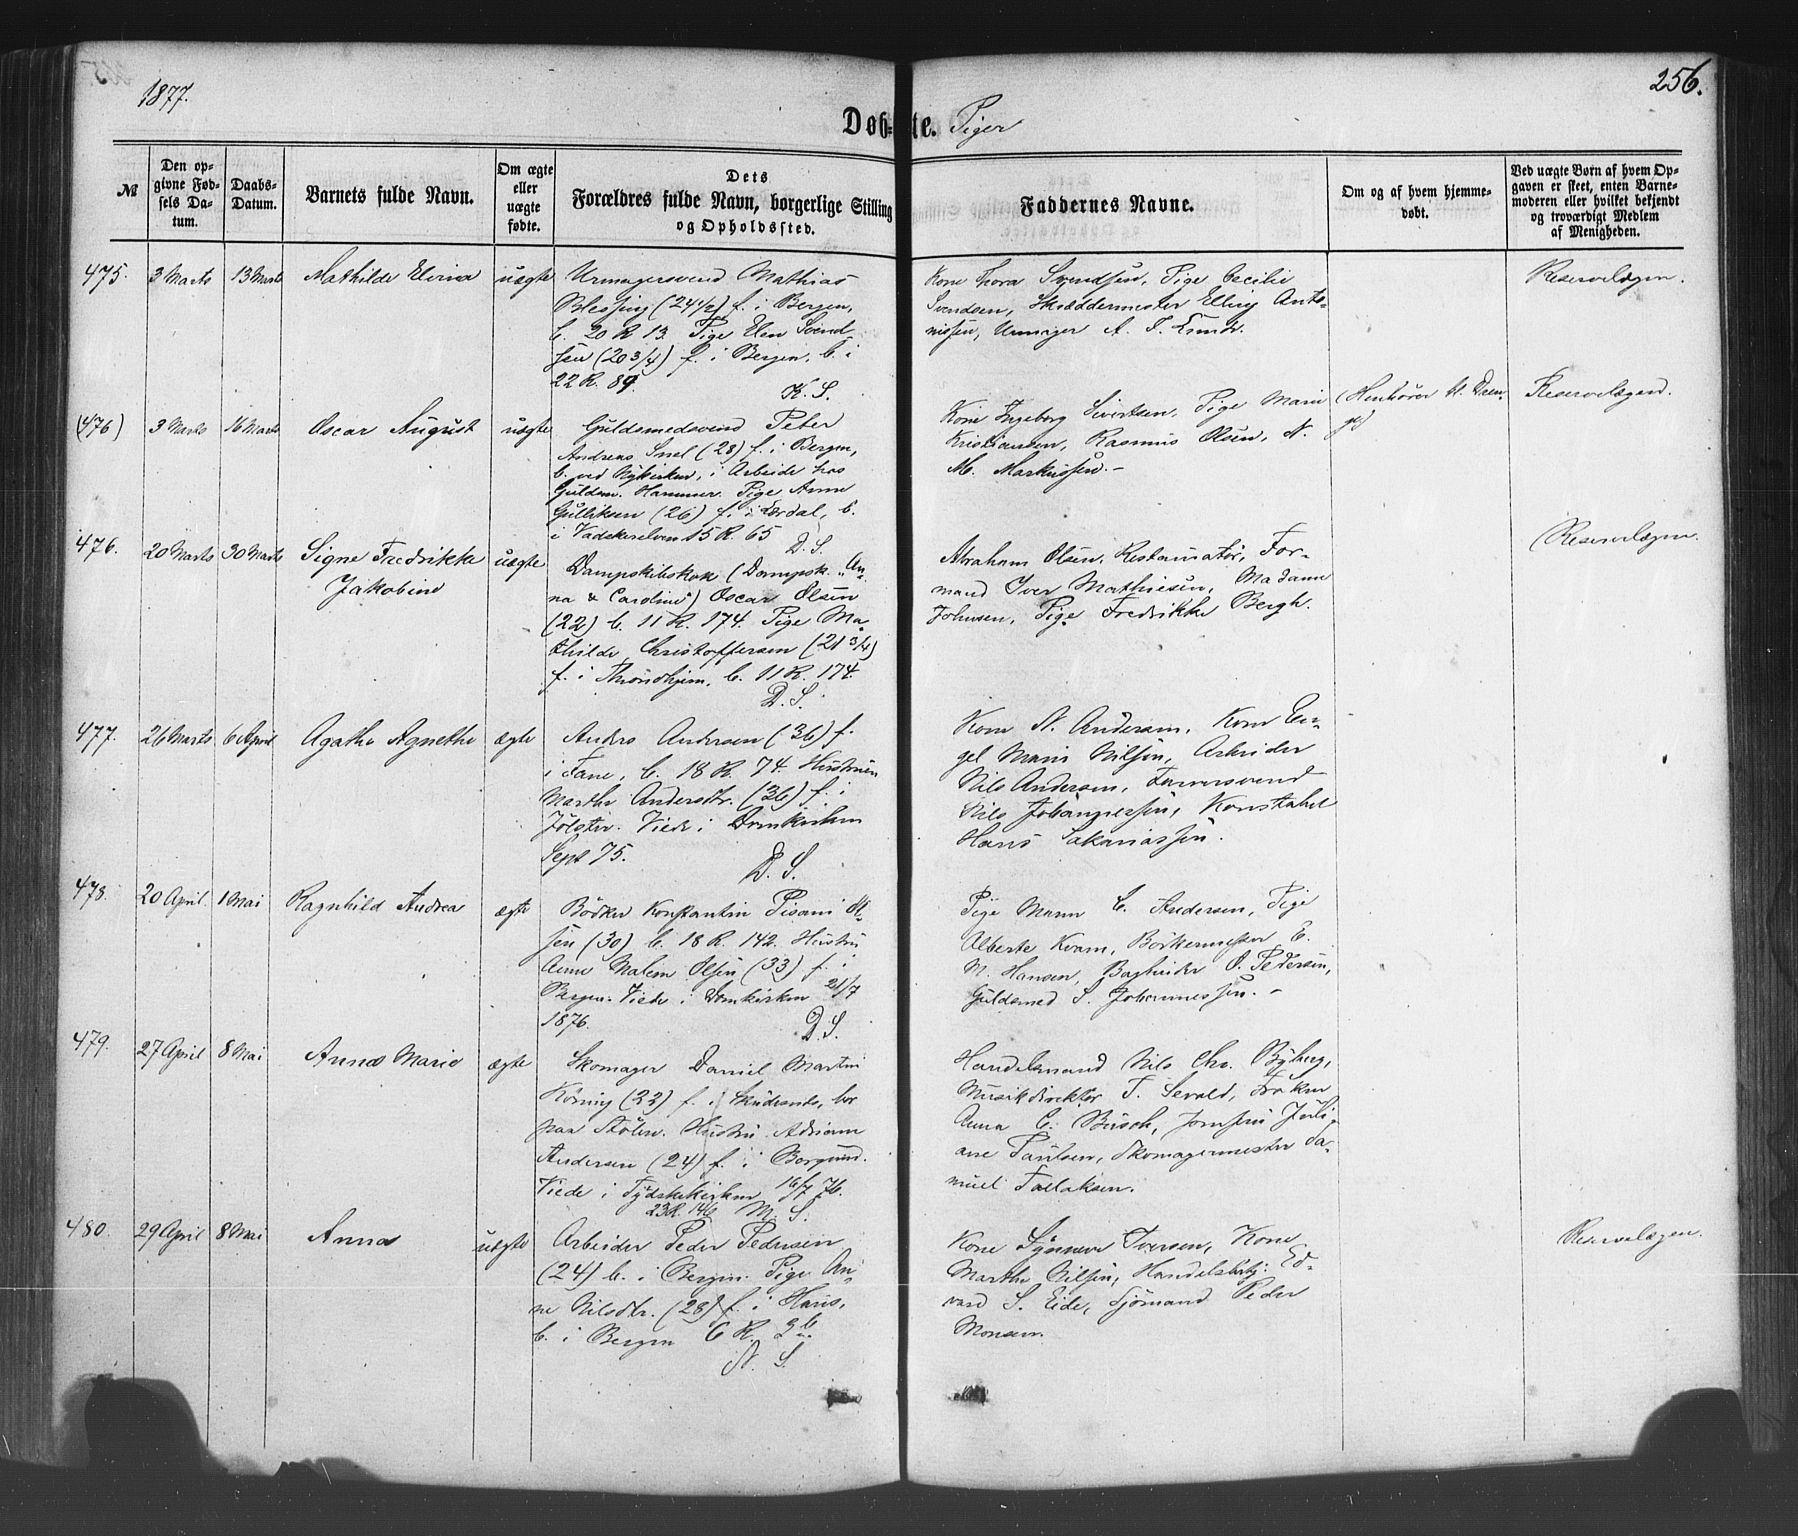 1877.
256.
Døbte. Piger
№
Den opgivne Fødsels Datum.
Daabs-Datum.
Barnets fulde Navn.
Om ægte eller uægte fødte.
Dets Forældres fulde Navn, borgerlige Stilling og Opholdssted.
Faddernes Navne.
Om og af hvem hjemmedøbt.
Ved uægte Børn af hvem Opgaven er skeet, enten Barnemoderen eller hvilket bekjendt og troværdigt Medlem af Menigheden.
475. 3 Marts 13 Marts Mathilde Elvina uægte
Urmagersvend Mathias
Blessing (24 1/2) f. i Bergen,
b. 20 R 13. Pige Elen Svend
sen (20 3/4) f. i Bergen, b. i
22 R. 89.
K. S.
Kone Thora Svendsen, Pige Cecilie
Svendsen, Skræddermester Ellery Anto-
nissen, Urmager A. F.
Reservelægen.
(476) 3 Marts 16 Marts Oscar August uægte
Guldsmedsvend Peter
Andreas Snel (28) f. i Bergen,
b. ved Nykirken, i Arbeide hos
Guldsm. Hammer. Pige Anne
Gulliksen (26) f. i Lærdal, b.
i Vadskerelven 15 R. 65
D. S.
Kone Ingeborg Sivertsen, Pige Marie
Kristiansen, Rasmus Olsen, N.
M. Markussen. -
(Henhører til Dren-
ge)
Reservelægen.
476. 20 Marts 30 Marts Signe Fredrikke uægte
Jakobine
Dampskibskok (Dampsk. "An-
na & Caroline") Oscar Olsen
(22) b. 11 R. 174. Pige Ma-
thilde Christoffersen (21 3/4)
f. i Throndhjem, b. 11 R. 174.
D. S.
Abraham Olsen, Restauratør, For-
mand Iver Mathiesen, Madame
Johnsen, Pige Fredrikke Bergh.
Reservelægen.
477. 26 Marts 6 April Agathe Agnethe ægte
Anders Andersen (36) f.
i Fane, b. 18 R. 74. Hustruen
Marthe Andersdtr. (36) f. i
Jølster. Viede i Domkirken
Sept 75.
D. S.
Kone N. Andersen, Kone En-
gel Marie Nilsen, Arbeider
Nils Andersen,
Nils Johannessen, Konstabel
Hans Sakariassen.
478. 20 April 1 Mai Ragnhild Andrea ægte
Bødker Konstantin Pisani Ol-
sen (30) b. 18 R. 142. Hustru
Anne Malene Olsen (33) f. i
Bergen. Viede i Domkirken 21/7
1876.
D. S.
Pige Maren C. Andersen, Pige
Alberte Kvam, Bødkermester E.
M. Hansen, Bagsvider O. Pedersen,
Guldsmed S. Johannessen. -
479. 27 April 8 Mai Anna Marie ægte
Skomager Daniel Martin
Kørnig (22) f. i Skudesnes, bor
paa Stølen. Hustru Adriane
Andersen (24) f. i Borgund.
Viede i Tydskekirken 16/7 76.
23 R. 146 M. S.
Handelsmand Nils Chr. Byberg,
Musikdirektør F. Sevald, Frøken
Anna C. Busch, Jomfru Juli-
ane Paulsen, Skomagermester Sa-
muel Fallaksen.
480. 29 April 8 Mai Anna uægte
Arbeider Peder Pedersen
(24) b. i Bergen. Pige An-
ne Nilsdtr. (28) f. i Haus,
b. i Bergen 6 R.
N. S.
Kone Synneve Iversen, Kone
Marthe Nilsen, Handelsbetj: Ed-
vard S. Eide, Sjømand Peder
Monsen.
Reservelægen.